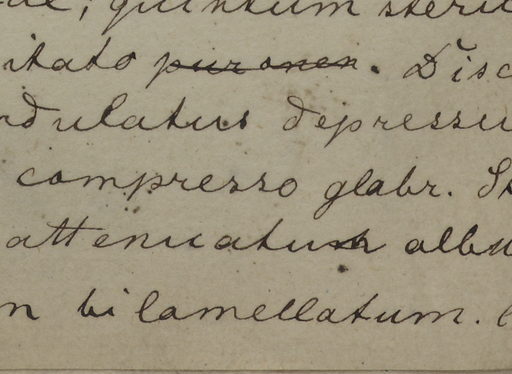 quintum
itato puronen. Disc
ndulatus depressu
compresso glabr. St
attenuatum albu
n bilamellatum.